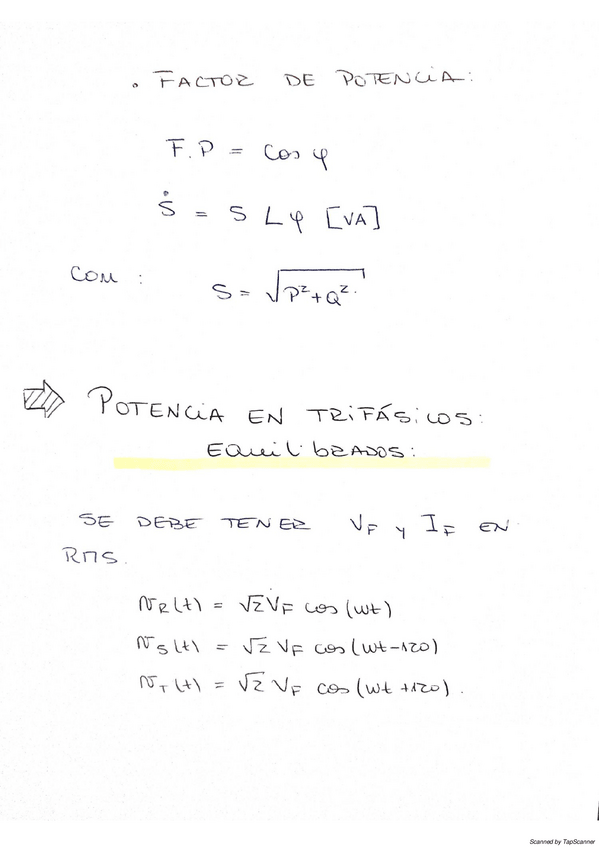 . FACTOR DE POTENCIA:
F.P = cos φ
Ṡ = S ∠φ [VA]
CON :
S = √P²+Q².
⇒ POTENCIA EN TRIFÁSICOS:
EQUILIBRADOS:
SE DEBE TENER V_F y I_F EN
RMS.
v_R(t) = √2 V_F cos(wt)
v_S(t) = √2 V_F cos(wt-120)
v_T(t) = √2 V_F cos(wt +120).
Scanned by TapScanner